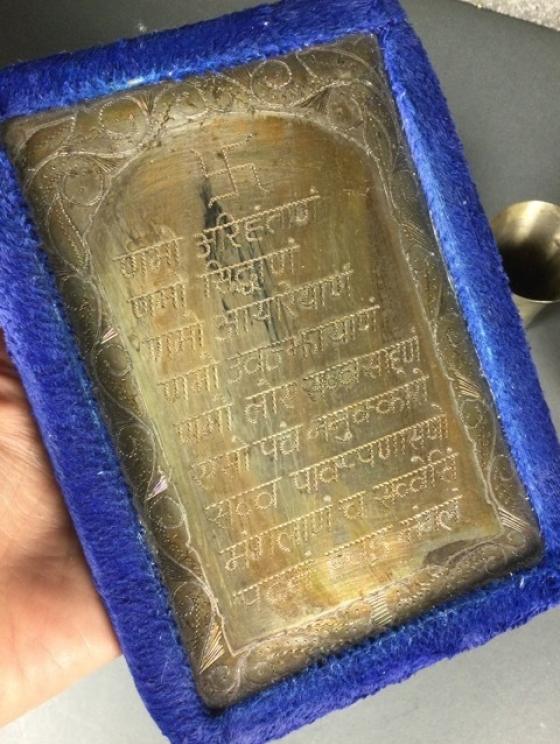 णमो अरिहंताणं
णमो सिद्धाणं
णमो आयरियाणं
णमो उवज्झायाणं
णमो लोए सव्वसाहूणं
एसो पंच नमुक्कारो
सव्व पावप्पणासणो
मंगलाणं च सव्वेसिं
मंगलं